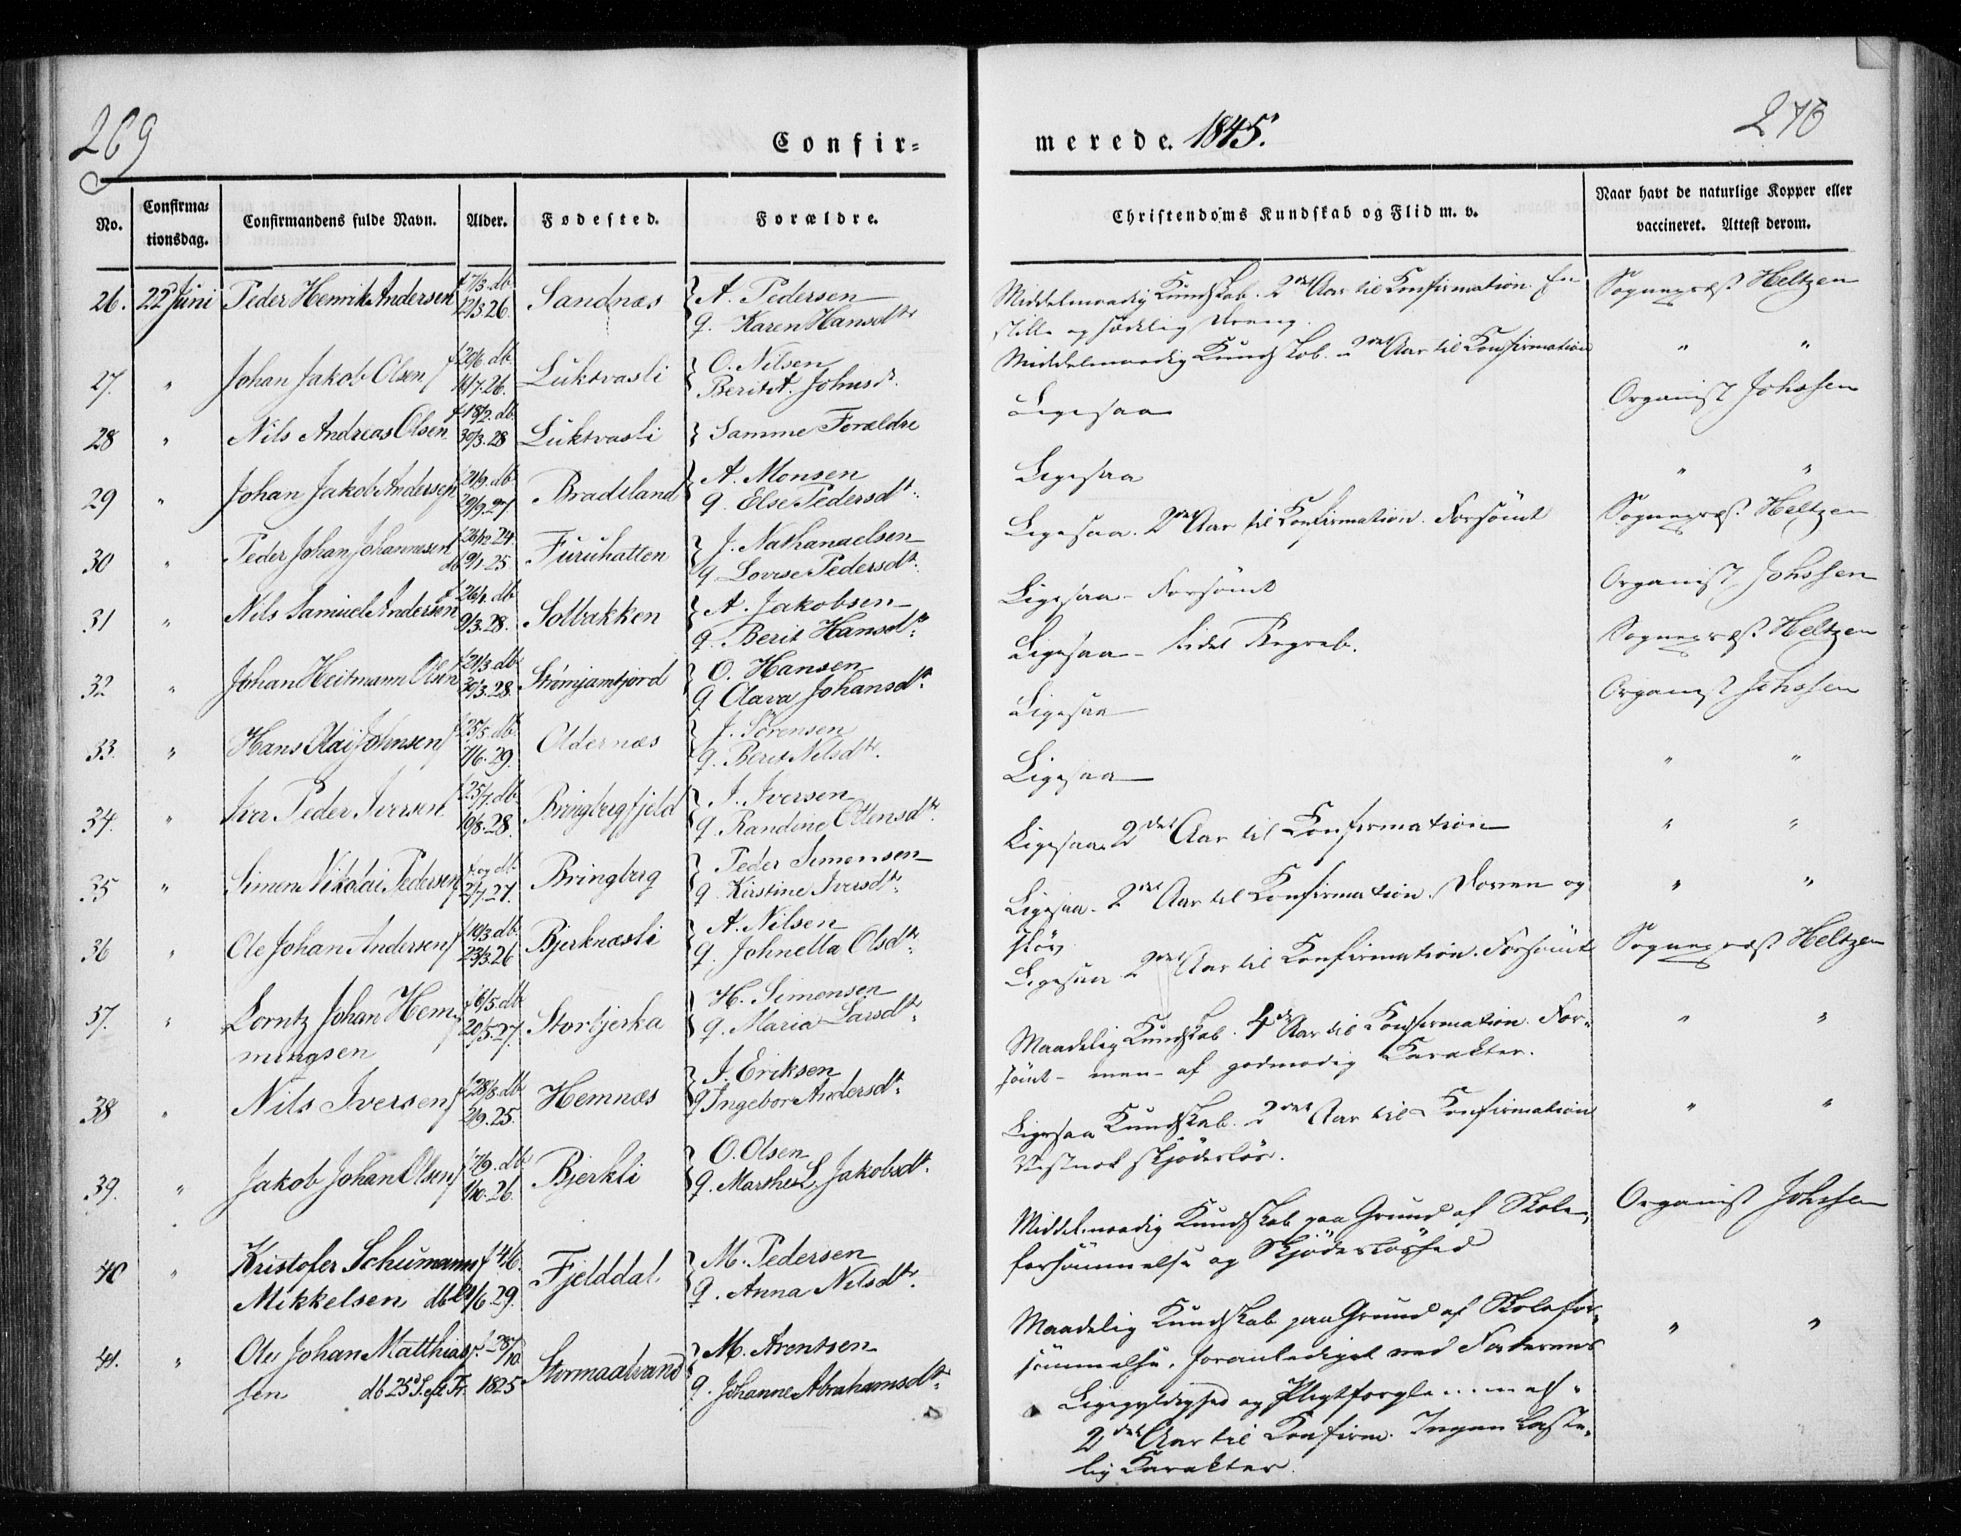 269
Confir-
merede. 1845.
270
No.
Confirma-
tionsdag.
Confirmandens fulde Navn.
Alder.
Fødested.
Forældre.
Christendoms Kundskab og Flid m. v.
Naar havt de naturlige Kopper eller
vaccineret. Attest derom.
26. 22 Juni Peder Henrik Andersen f 7/3 db 12/3 26. Sandnæs
A. Pedersen
q. Karen Hansdtr
Middelmaadig Kundskab. 2det Aar til Konfirmation. En
stille og sædelig Dreng.
Sognepræst Heltzen
27. " Johan Jakob Olsen f 20/6 db 16/7 26. Luktvasli
O. Nilsen
Berit A. Johnsd.
Middelmaadig Kundskab. 2det Aar til Konfirmation
" "
28 " Nils Andreas Olsen f 18/2 db 30/3 28 Luktvasli
Samme Forældre
Ligesaa
Organist Johssen
29 " Johan Jakob Andersen f 21/9 db 29/9 27 Bradsland
A. Monsen
q. Else Pedersdt.
Ligesaa
" "
30 " Peder Johan Johannesen f 26/12 24 db 9/1 25 Furuhatten
J. Nathanaelsen
q Lovise Pedersdt.
Ligesaa. 2det Aar til Konfirmation. Forsømt
Sognepræst Heltzen
31 " Nils Samuel Andersen f 26/1 db 9/3. 28. Solbakken
A. Jakobsen
q. Berit Hansdtr
Ligesaa - Forsømt
Organist Johssen
32 " Johan Heitmann Olsen f 21/3 db 30/3. 28. Strømjamtjord
O. Hansen
q Olava Johansdtr
Ligesaa - Lidet Begreb.
Sognepræst Heltzen
33. " Hans Olai Johnsen f 25/5 db 7/6. 29. Oldernæs
J. Sørensen
q. Berit Nilsdtr.
Ligesaa
Organist Johssen
34. " Iver Peder Iversen f 25/7. db 10/8. 28. Bringbergfjeld
I. Iversen
q. Randine Ottensdtr.
Ligesaa
" "
35 " Simen Nikolai Pedersen f. og db 2/7. 27. Bringberg
Peder Simonsen
q. Kirstine Iversdtr.
Ligesaa. 2det Aar til Konfirmation
" "
36 " Ole Johan Andersen f 10/3 db 23/3. 26 Bjerknæsli
A. Nilsen
q. Johnetta Olsdtr
Ligesaa. 2det Aar til Konfirmation. Doven og
sløv
" "
37. " Lorntz Johan Hem-
mingsen f 6/5. db 20/5. 27. Storbjerka
H. Simonsen
q. Maria Larsdt.
Ligesaa 2det Aar til Konfirmation. Forsømt
Sognepræst Heltzen
38 " Nils Iversen f 28/8. db 2/9. 25. Hemnæs
I. Eriksen
q Ingebor Andersdt.
Maadelig Kundskab. 4de Aar til Konfirmation. For-
sømt - men - af godmodig Karakter.
" "
39. " Jakob Johan Olsen f 7/9. db 1/10. 26. Bjerkli
O. Olsen
q. Marthe L. Jakobsdt.
Ligesaa Kundskab. 2det Aar til Konfirmation
Vistnok skjødesløs.
" "
40 " Kristofer Schumann
Mikkelsen f 4/6. db 21/6. 29. Fjelddal
M. Pedersen
q. Anna Nilsdtr.
Middelmaadig Kundskab paa Grund af Skole-
forsømmelse og Skjødesløshed
Organist Johssen
41. " Ole Johan Matthias-
sen f. 28/10 1825 db 25 S. eft Tr. Stormaalvand
M. Arentsen
q. Johanne Abrahamsdtr.
Maadelig Kundskab paa Grund af Skolefor-
sømmelse, foranlediget ved Faderens
Ligegyldighed og Pligtforglemmelse.
2det Aar til Konfirm. Ingen laste-
lig Karakter.
" "